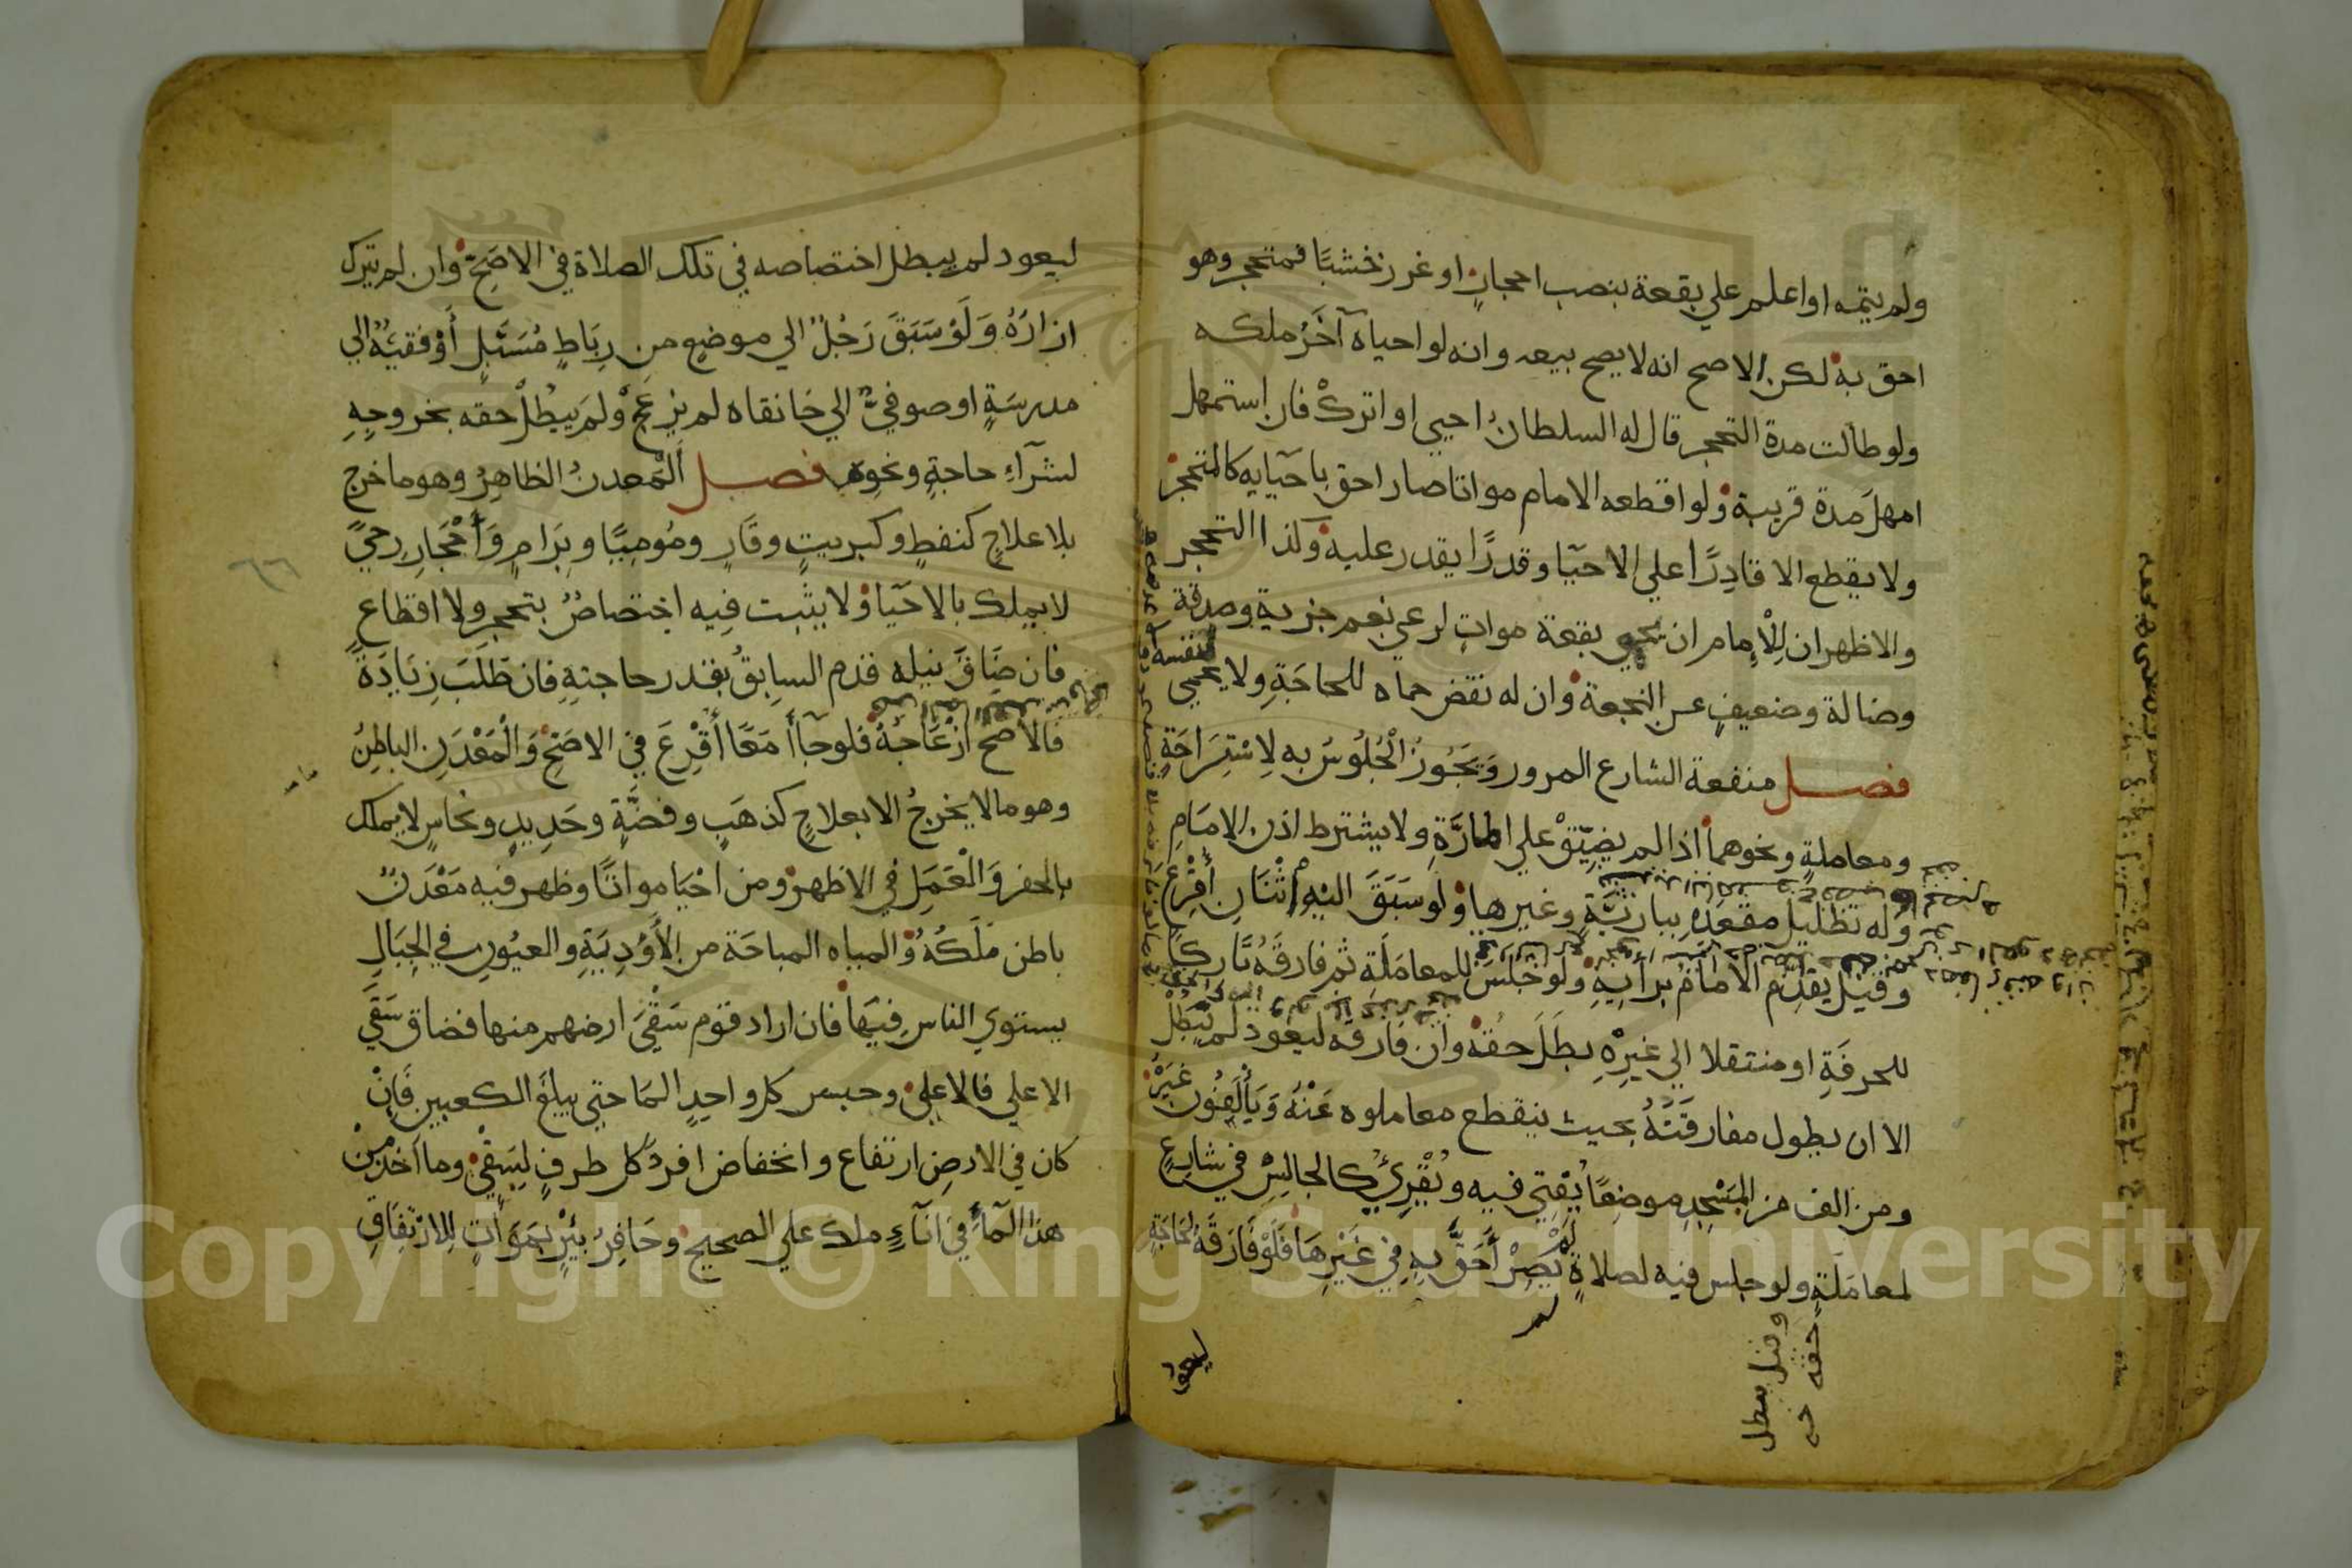 ولم يتمه او اعلم علي بقعة بنصب احجارٍ او غرز خشبًا فمتحجر وهو
احق به لكن الاصح انه لا يصح بيعه وانه لو احياه آخَرُ ملكه
ولو طالت مدة التحجر قال له السلطانُ احيي او اترك فان استمهل
امهلَ مدة قريبة ولو اقطعه الامام مواتا صار احق باحيَايِه كالمتحجر
ولا يقطع الا قادِرًا علي الاحيَا وقدرًا يقدر عليه وكذا التحجر
والاظهر ان لِلْإمام ان يحمي بقعة مواتٍ لرعي نعم جزية وصدقة
وضالة وضعيفٍ عن النجعة وان له نقض حماه للحاجَةِ ولا يحمي
لنفسه
فصل منفعة الشارع المرور وَيَجُوزُ الْجُلُوسُ به لِاسْتِرَاحَةٍ
ومعاملةٍ ونحوهما اذا لم يضيّقْ علي المارَّةِ ولا يشترط اذن الامَامِ
وَله تظليل مقعَدِهِ ببارِيَّةٍ وغيرها ولو سَبَقَ اليْهِ اثْنَانِ أُقْرِعَ
وقيْل يقدِّم الامَامُ برأيِهِ ولو جَلَسَ للمعامَلَةِ ثم فارقَهُ تَاركا
للحرفَةِ او منتقلا الي غيرِهِ بطَلَ حقه وان فارقه ليعود لم يَبْطُلْ
الا ان يطول مفارقَتهُ بحيث ينقطع معاملوه عَنْهُ وَيَأْلَفُونَ غَيْرَهُ
ومن الف من المَسْجِدِ موضِعًا يُفْتِي فيه ويُقْرِئُ كالجالِسْ في شارِعٍ
لمعامَلَةٍ ولو جلس فيه لصلاةٍ لَمْ يَصِرْ أَحَقَّ بهِ فِي غَيْرِهَا فَلَوْ فَارَقَهُ لحَاجَةٍ
وقيل يبطل
حقه
ليعود
ليعود لم يبطل اختصاصه في تلك الصلاة في الاصَحِ وان لم يترك
ازارَهُ وَلَوْ سَبَقَ رَجُلٌ الي موضعٍ من رِبَاطٍ مُسَبَّلٍ أَوْ فقيْهٌ الي
مدرسَةٍ او صوفيٌّ الي خَانقاه لم يزعَجْ ولَم يَبْطُلْ حقه بخروجِهِ
لشرآءِ حاجةٍ ونحوِهِ فصل الْمَعدنُ الظاهِرُ وهو ما خرج
بلا علاجٍ كنفطٍ وكبريتٍ وقَارٍ ومُومِيًا وبِرَامٍ وَأَحْجَارِ رحيً
لا يملك بالاحيَا ولا يثبت فِيه اختِصاصٌ بتحجر ولا اقطاعٍ
فان ضَاقَ نيله قدم السابِقُ بقدر حاجتِهِ فان طَلَبَ زِيَادَةً
فَالاصح ازْعَاجُهُ فلو جآأَ مَعًا أُقْرِعَ في الاصَحْ وَالْمَعْدَنُ الباطِنُ
وهو ما لا يخرجُ الا بعلاجٍ كذهَبٍ وفضَّةٍ وحَدِيدٍ ونحاسٍ لا يملك
بالحفر وَالْعَمَلِ في الاظهر ومن احْيَا مواتًا وظهر فيه مَعْدَنٌ
باطن مَلَكَهُ والمياه المباحَة من الأَوْدِيَةِ والعيُونِ في الجِبَالِ
يستوي الناس فِيهَا فان اراد قوم سَقْيَ ارضهم منها فضاق سَقَي
الاعلي فالاعلي وحبس كل واحدٍ المَا حتي يبلغَ الكعبين فَإِنْ
كان في الارضِ ارتفاع وانخفاض افردَ كل طرفٍ لِسَقْيٍ وما اخذ مِنْ
هذا المآءِ في انَآءٍ ملك علي الصحيح وحَافِرُ بئرٍ بمَوَاتٍ لِلارْتِفَاقِ
٦٦
Copyright © King Saud University